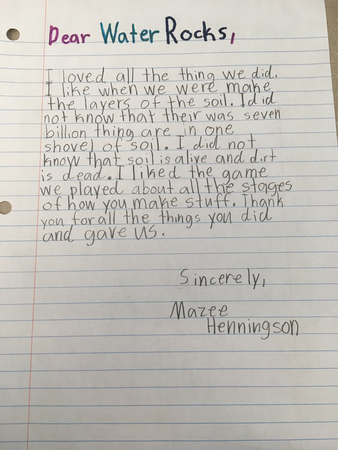 Dear Water Rocks,
I loved all the thing we did.
I like when we were make
the layers of the soil. I did
not know that their was seven
billion thing are in one
shovel of soil. I did not
know that soil is alive and dirt
is dead. I liked the game
we played about all the stages
of how you make stuff. Thank
you for all the things you did
and gave us.
Sincerely,
Mazee
Henningson